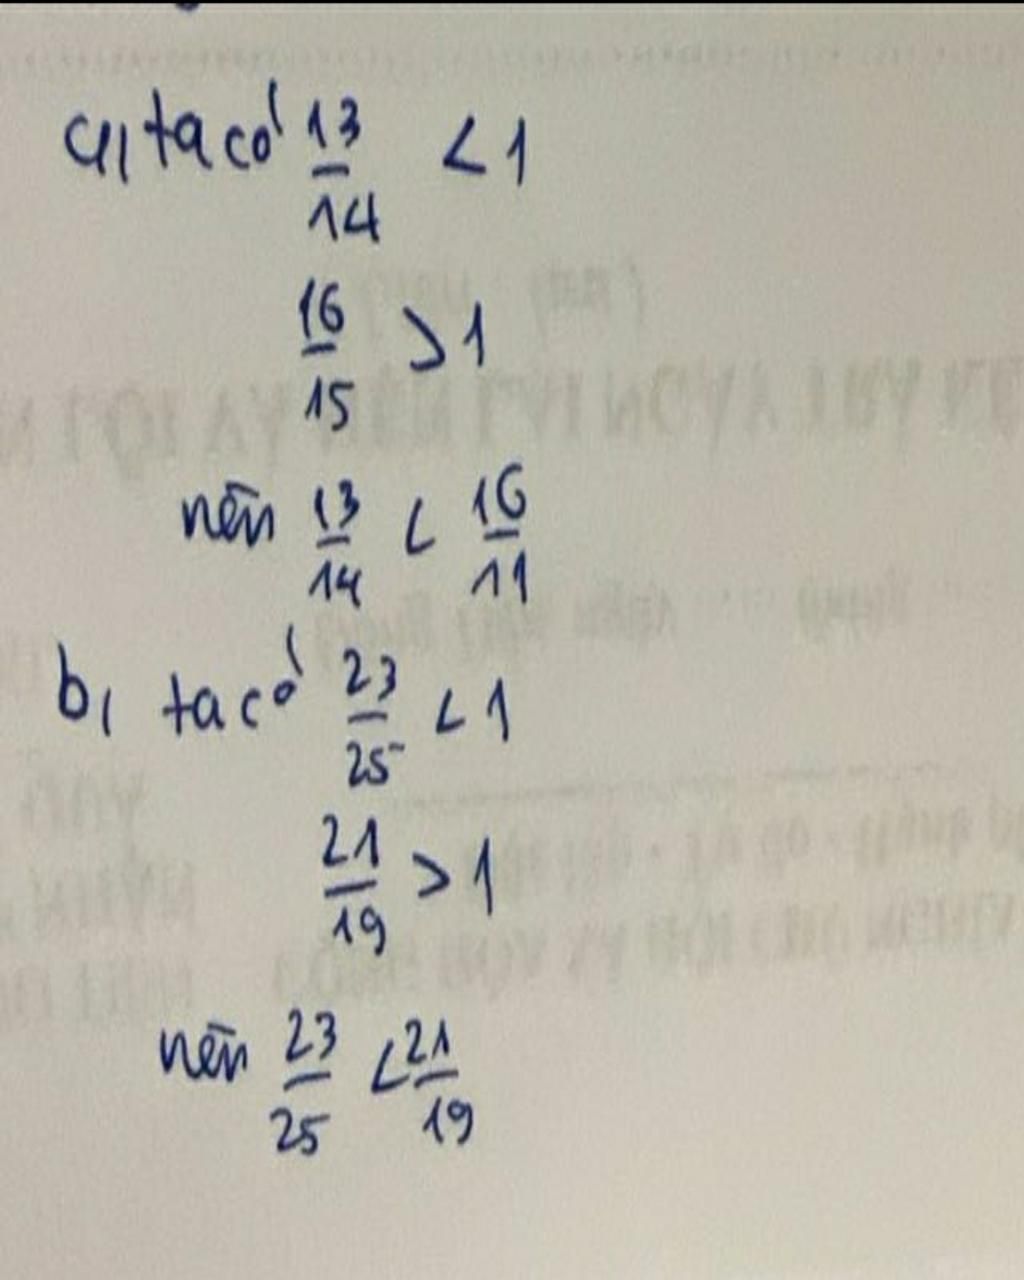 a, ta có 13/14 < 1
16/15 > 1
nên 13/14 < 16/11
b, ta có 23/25 < 1
21/19 > 1
nên 23/25 < 21/19